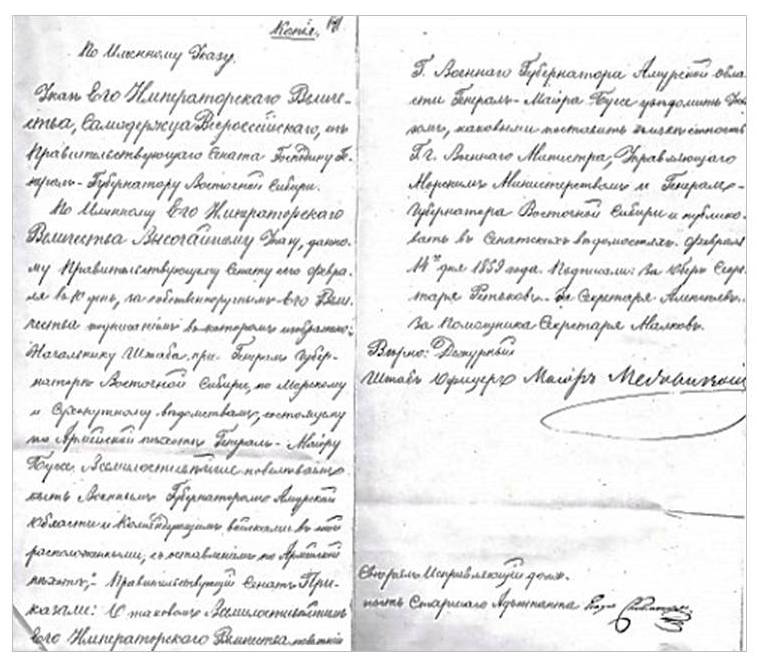 Копія.
По Именному Указу.
Указъ Его Императорскаго Величе-
ства, Самодержца Всероссійскаго, изъ
Правительствующаго Сената Господину Ге-
нералъ-Губернатору Восточной Сибири.
По Именному Его Императорскаго
Величества Высочайшему Указу, данно-
му Правительствующему Сенату сего Февра-
ля въ день, за собственноручнымъ Его Вели-
чества подписаніемъ въ которомъ изображено:
Начальнику Штаба при Генералъ Губер-
наторѣ Восточной Сибири, по Морскому
и Сухопутному вѣдомствамъ, состоящему
по Армейской пѣхотѣ Генералъ-Маіору
Буссе Всемилостивѣйше повелѣваемъ
быть Военнымъ Губернаторомъ Амурской
Области и Командующимъ войсками въ ней
расположенными, съ оставленіемъ по Армейской
пѣхотѣ,- Правительствующій Сенатъ При-
казали: О таковомъ Всемилостивѣйшемъ
Его Императорскаго Величества повелѣніи
Г. Военнаго Губернатора Амурской Обла-
сти Генералъ-Маіора Буссе увѣдомить Ука-
зомъ, каковыми поставить въ извѣстность
Г.г. Военнаго Министра, Управляющаго
Морскимъ Министерствомъ и Генералъ-
Губернатора Восточной Сибири и публико-
вать въ Сенатскихъ вѣдомостяхъ. Февраля
14 дня 1859 года. Подписали: За Оберъ Секре-
таря Секретаря
За Помощника Секретаря Малковъ.
Вѣрно: Дежурный
Штабъ Офицеръ Маіоръ
Свѣрялъ Исправляющій долж-
ность Старшаго Адъютанта